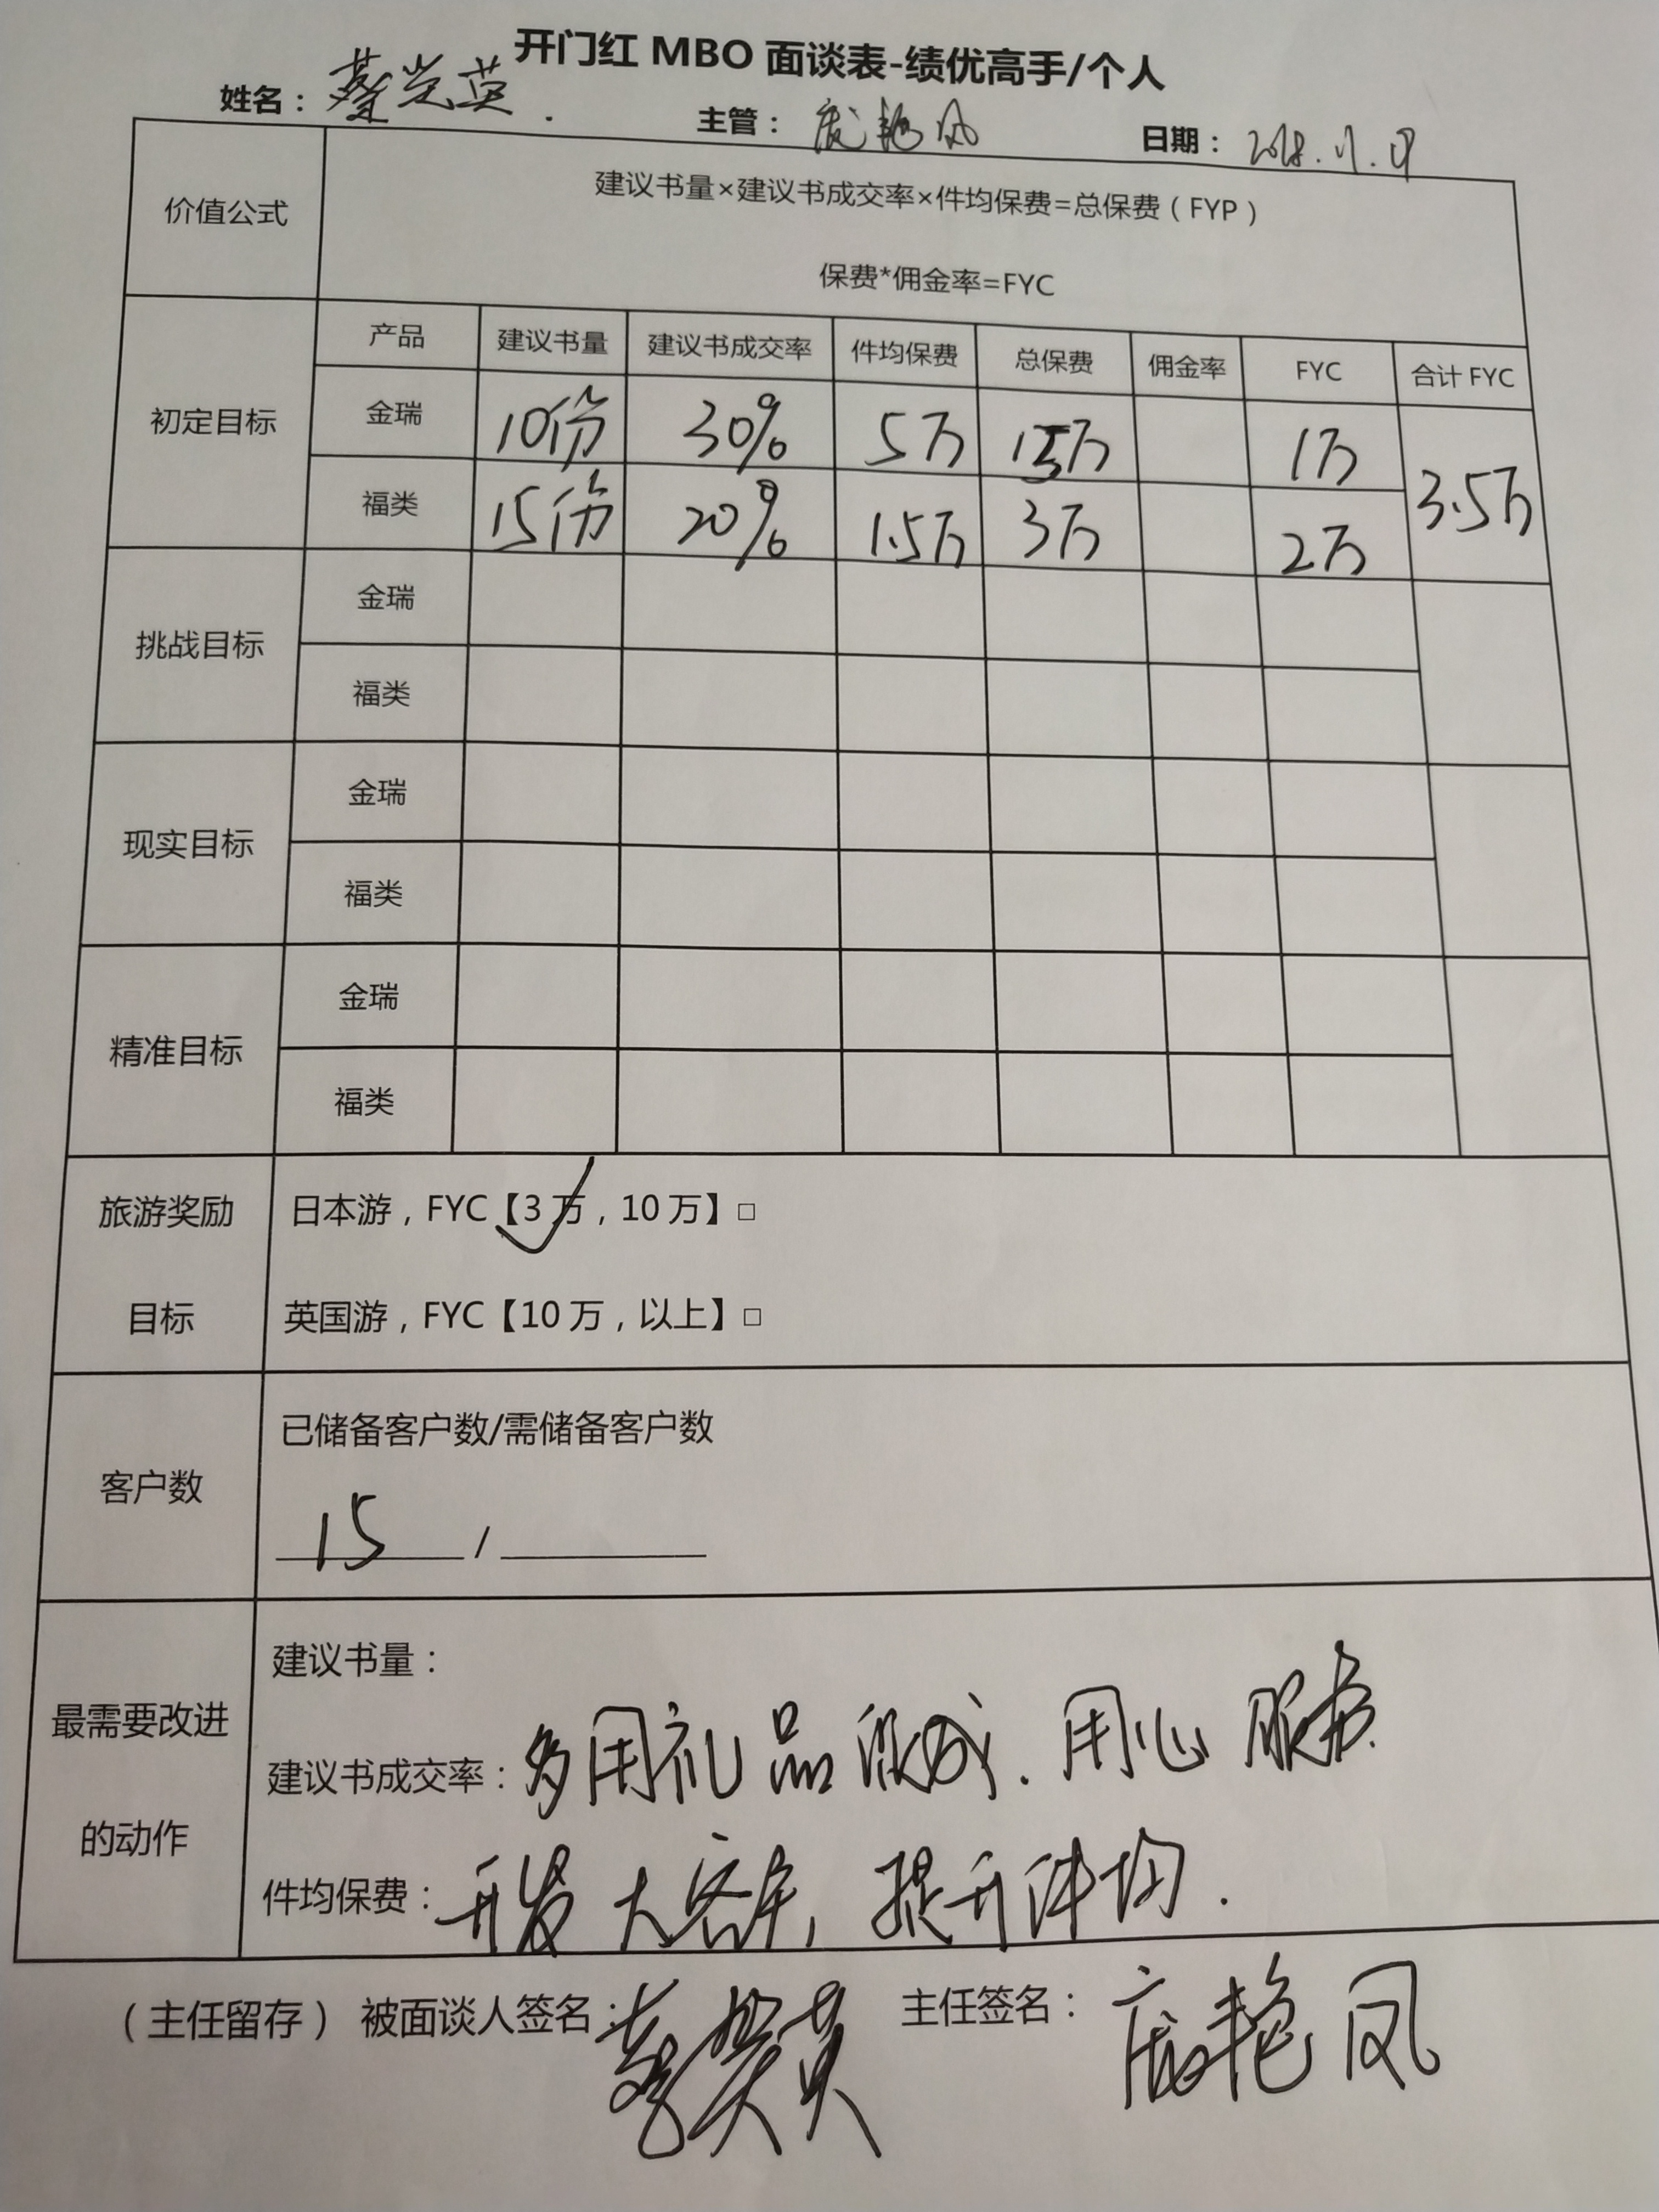 开门红 MBO 面谈表-绩优高手/个人
姓名： 主管： 庞艳凤 日期： 2018.11.
价值公式
建议书量×建议书成交率×件均保费=总保费（FYP）
保费*佣金率=FYC
初定目标
产品 建议书量 建议书成交率 件均保费 总保费 佣金率 FYC 合计 FYC
金瑞 10份 30% 5万 15万 1万 3.5万
福类 15份 20% 1.5万 3万 2万
挑战目标
金瑞
福类
现实目标
金瑞
福类
精准目标
金瑞
福类
旅游奖励
目标
日本游，FYC【3 万，10 万】□
英国游，FYC【10 万，以上】□
客户数
已储备客户数/需储备客户数
15 /
最需要改进
的动作
建议书量：
建议书成交率：多用礼品 . 用心服务
件均保费：开发大客户, 提升件均.
（主任留存） 被面谈人签名： 主任签名： 庞艳凤